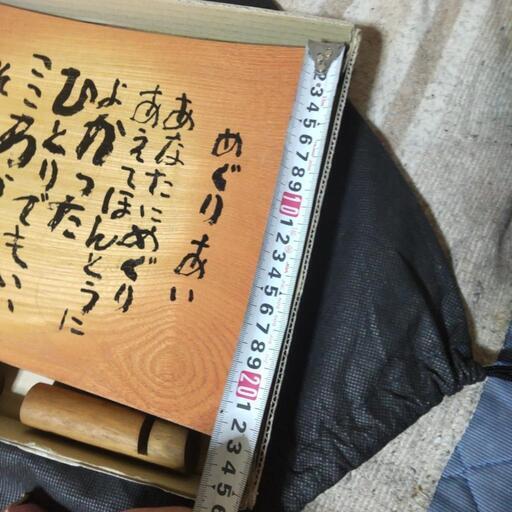 めぐりあい
あなたにめぐり
あえてほんとうに
よかった
ひとりでもいい
ここ
そ
2 3 4 5 6 7 8 9 10 1 2 3 4 5 6 7 8 9 20 1 2 3 4 5 6